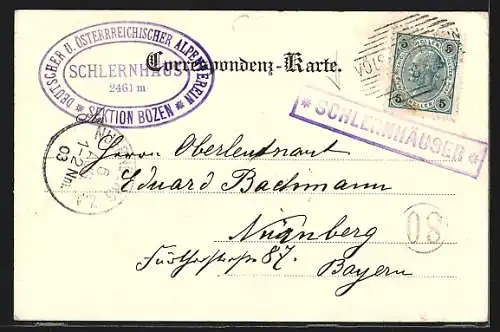 DEUTSCHER U. ÖSTERRREICHISCHER ALPENVEREIN
SCHLERNHAUS
2461 m
* SEKTION BOZEN *
Correspondenz-Karte.
5 HELLER 5
5 HELLER 5
VÖLS
* SCHLERNHÄUSER *
An
NÜRNBERG
6
1-2 Nm.
03
Herrn Oberleutnant
Eduard Bachmann
Nürnberg
Fürtherstraße 87.
Bayern
OS